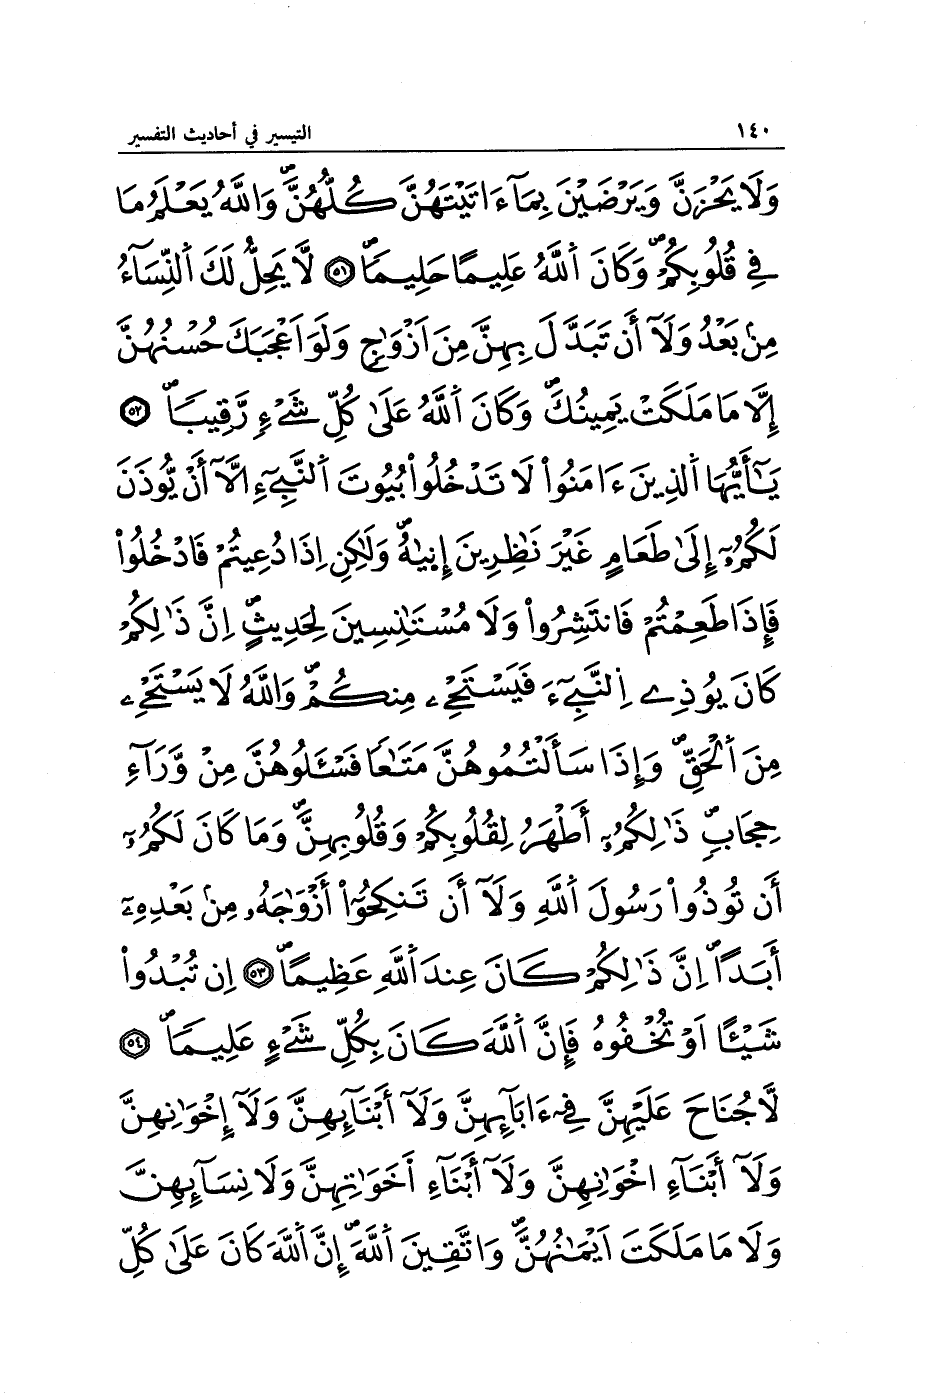 ١٤٠ التيسير في أحاديث التفسير
وَلَا يَحْزَنَّ وَيَرْضَيْنَ بِمَآ ءَاتَيْتَهُنَّ كُلُّهُنَّۖ وَاللَّهُ يَعْلَمُ مَا
فِي قُلُوبِكُمْۖ وَكَانَ اَللَّهُ عَلِيمًا حَلِيمًاۖ ٥١ لَّا يَحِلُّ لَكَ اَلنِّسَآءُ
مِنۢ بَعْدُ وَلَآ أَن تَبَدَّلَ بِهِنَّ مِنَ اَزْوَٰجٍ وَلَوَ اَعْجَبَكَ حُسْنُهُنَّ
إِلَّا مَا مَلَكَتْ يَمِينُكَۖ وَكَانَ اَللَّهُ عَلَىٰ كُلِّ شَےْءٍ رَّقِيبًاۖ ٥٢
يَٰٓأَيُّهَا اَلذِينَ ءَامَنُواْ لَا تَدْخُلُواْ بُيُوتَ اَلنَّبِےٓءِ الَّآ أَنْ يُّوذَنَ
لَكُمُۥٓ إِلَىٰ طَعَامٍ غَيْرَ نَٰظِرِينَ إِنَىٰهُۖ وَلَٰكِنِ اِذَا دُعِيتُمْ فَادْخُلُواْ
فَإِذَا طَعِمْتُمْ فَانتَشِرُواْ وَلَا مُسْتَٰنِسِينَ لِحَدِيثٍۖ اِنَّ ذَٰلِكُمْ
كَانَ يُوذِے اِلنَّبِےٓءَ فَيَسْتَحْےِۦ مِنكُمْۖ وَاللَّهُ لَا يَسْتَحْےِۦ
مِنَ اَلْحَقِّۖ وَإِذَا سَأَلْتُمُوهُنَّ مَتَٰعًا فَسْـَٔلُوهُنَّ مِنْ وَّرَآءِ
حِجَابٍۖ ذَٰلِكُمُۥٓ أَطْهَرُ لِقُلُوبِكُمْ وَقُلُوبِهِنَّۖ وَمَا كَانَ لَكُمُۥٓ
أَن تُوذُواْ رَسُولَ اَللَّهِ وَلَآ أَن تَنكِحُوٓاْ أَزْوَٰجَهُۥ مِنۢ بَعْدِهِۦٓ
أَبَدًاۖ اِنَّ ذَٰلِكُمْ كَانَ عِندَ اَللَّهِ عَظِيمًاۖ ٥٣ اِن تُبْدُواْ
شَيْـًٔا اَوْ تُخْفُوهُ فَإِنَّ اَللَّهَ كَانَ بِكُلِّ شَےْءٍ عَلِيمًاۖ ٥٤
لَّا جُنَاحَ عَلَيْهِنَّ فِےٓ ءَابَآئِهِنَّ وَلَآ أَبْنَآئِهِنَّ وَلَآ إِخْوَٰنِهِنَّ
وَلَآ أَبْنَآءِ اخْوَٰنِهِنَّ وَلَآ أَبْنَآءِ اَخَوَٰتِهِنَّ وَلَا نِسَآئِهِنَّ
وَلَا مَا مَلَكَتَ اَيْمَٰنُهُنَّۖ وَاتَّقِينَ اَللَّهَۖ إِنَّ اَللَّهَ كَانَ عَلَىٰ كُلِّ